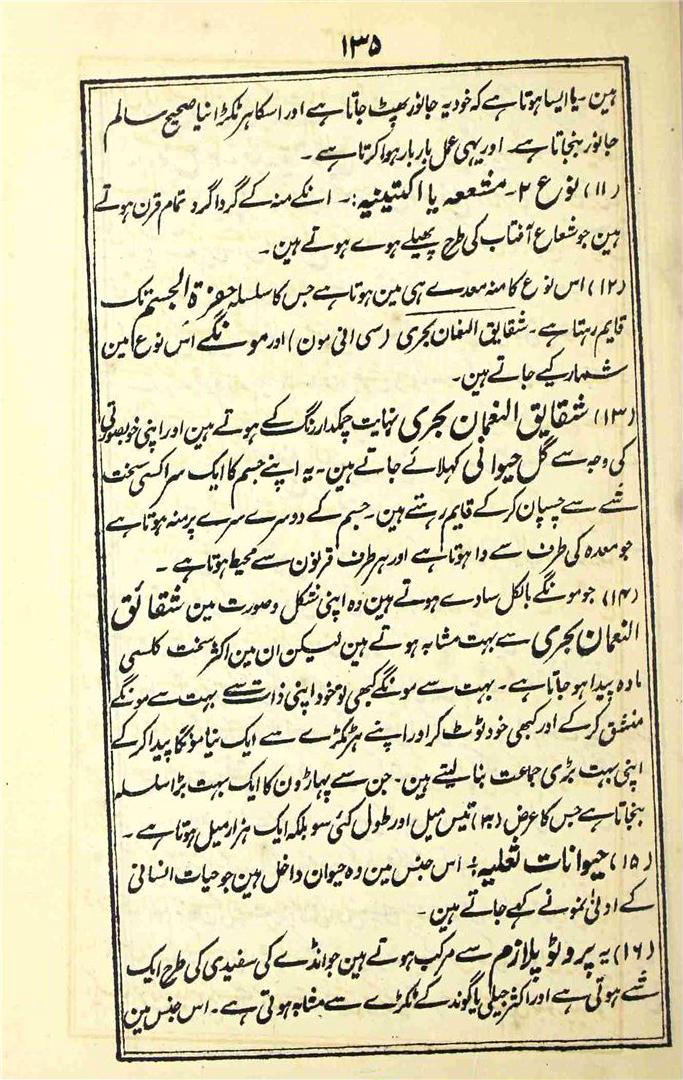 ۱۳۵
ہین۔ یا ایسا ہوتا ہے کہ خود یہ جانور پھٹ جاتا ہے اور اسکا ہر ٹکڑا نیا صحیح سالم
جانور بنجاتا ہے۔ اور یہی عمل بار بار ہوا کرتا ہے۔
(۱۱) نوع ۲۔ متشععہ یا اکتینیہ:۔ انکے منہ کے گردا گرد تمام قرن ہوتے
ہین جو شعاع آفتاب کی طرح پھیلے ہوے ہوتے ہین۔
(۱۲) اس نوع کا منہ معدے ہی مین ہوتا ہے جس کا سلسلہ حفرۃ الجسم تک
قایم رہتا ہے۔ شقایق النعمان بحری (سی انی مون) اور مونگے اس نوع مین
شمار کیے جاتے ہین۔
(۱۳) شقایق النعمان بحری نہایت چمکدار رنگ کے ہوتے ہین اور اپنی خوبصورتی
کی وجہ سے گل حیوانی کہلائے جاتے ہین۔ یہ اپنے جسم کا ایک سرا کسی سخت
شے سے چسپان کر کے قایم رہتے ہین۔ جسم کے دوسرے سرے پر منہ ہوتا ہے
جو معدہ کی طرف سے وا ہوتا ہے اور ہر طرف قرنون سے محیط ہوتا ہے۔
(۱۴) جو مونگے بالکل سادے ہوتے ہین وہ اپنی شکل و صورت مین شقائق
النعمان بحری سے بہت مشابہ ہوتے ہین لیکن ان مین اکثر سخت کلسی
مادہ پیدا ہو جاتا ہے۔ بہت سے مونگے کبھی تو خود اپنی ذات سے بہت سے مونگے
منشق کر کے اور کبھی خود ٹوٹ کر اور اپنے ہر ٹکڑے سے ایک نیا مونگا پیدا کر کے
اپنی بہت بڑی جماعت بنا لیتے ہین۔ جن سے پہاڑون کا ایک بہت بڑا سلسلہ
بنجاتا ہے جس کا عرض (۳۰) تیس میل اور طول کئی سو بلکہ ایک ہزار میل ہوتا ہے۔
(۱۵) حیوانات ثعلیہ:۔ اس جنس مین وہ حیوان داخل ہین جو حیات انسانی
کے ادنیٰ نمونے کہے جاتے ہین۔
(۱۶) یہ پروٹو پلازم سے مرکب ہوتے ہین جو انڈے کی سفیدی کی طرح ایک
شے ہوتی ہے اور اکثر جیلی یا گوند کے ٹکڑے سے مشابہ ہوتی ہے۔ اس جنس مین